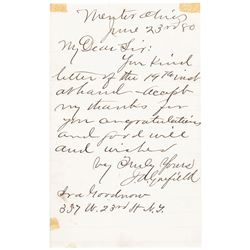 Mentor Ohio
June 23rd 80
My Dear Sir:
Your kind
letter of the 19th inst
at hand - accept
my thanks for
you congratulations
and good will
and wishes
Very Truly Yours
J A Garfield
Ira Goodnow
337 W. 23rd St N.Y.